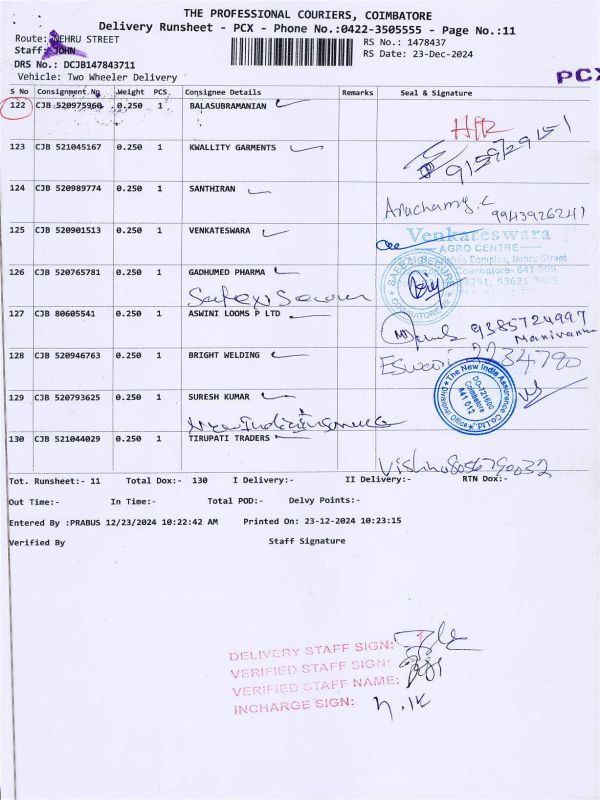 THE PROFESSIONAL COURIERS, COIMBATORE
Delivery Runsheet - PCX - Phone No.:0422-3505555 - Page No.:11
Route: NEHRU STREET
RS No.: 1478437
Staff: JOHN
RS Date: 23-Dec-2024
DRS No.: DCJB147843711
PCX
Vehicle: Two Wheeler Delivery
S No Consignment.No Weight PCS. Consignee Details Remarks Seal & Signature
122 CJB 520975960 0.250 1 BALASUBRAMANIAN
123 CJB 521045167 0.250 1 KWALLITY GARMENTS
124 CJB 520989774 0.250 1 SANTHIRAN
9943926241
125 CJB 520901513 0.250 1 VENKATESWARA
Venkateswara
AGRO CENTRE
Complex, Nehru Street
Coimbatore- 641 009.
126 CJB 520765781 0.250 1 GADHUMED PHARMA
COIMBATORE
127 CJB 80605541 0.250 1 ASWINI LOOMS P LTD
9385724997
128 CJB 520946763 0.250 1 BRIGHT WELDING
The New India Assurance Co Ltd.
Divisional Office
DO-721600
Coimbatore
641 012
129 CJB 520793625 0.250 1 SURESH KUMAR
130 CJB 521044029 0.250 1 TIRUPATI TRADERS
Vishnu 8056790032
Tot. Runsheet:- 11 Total Dox:- 130 I Delivery:- II Delivery:- RTN Dox:-
Out Time:- In Time:- Total POD:- Delvy Points:-
Entered By :PRABUS 12/23/2024 10:22:42 AM Printed On: 23-12-2024 10:23:15
Verified By Staff Signature
DELIVERY STAFF SIGN:
VERIFIED STAFF SIGN:
VERIFIED STAFF NAME:
INCHARGE SIGN: